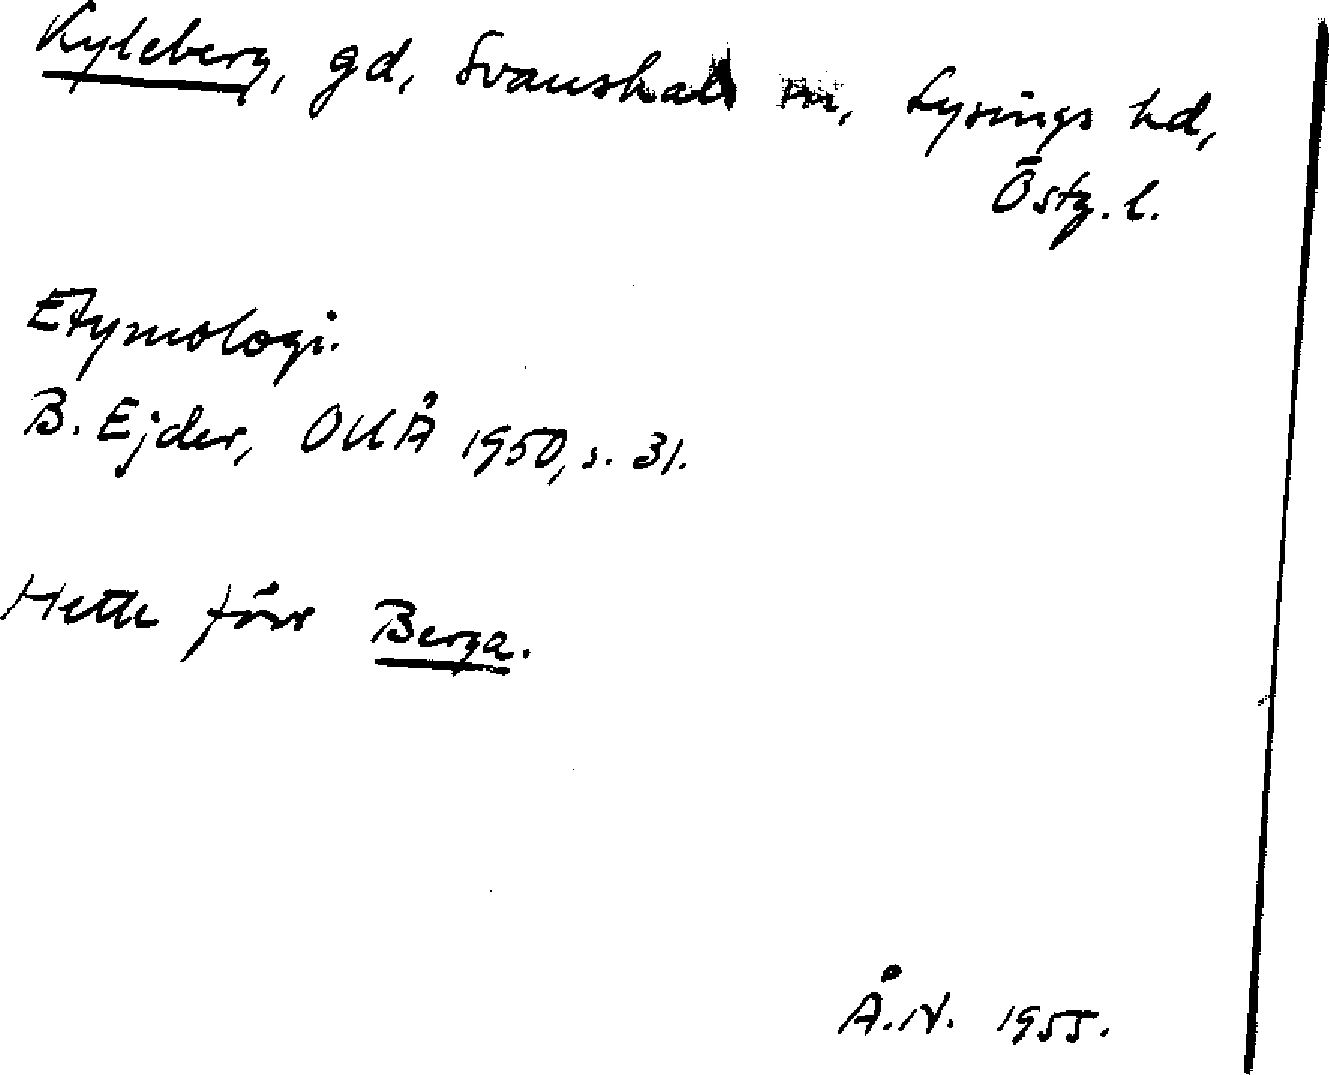 Kyleberg, gd, Svanshals sn, Lysings hd,
Östg. l.
Etymologi.
B. Ejder, OUÅ 1950, s. 31.
Hette förr Berga.
Å.N. 1955.